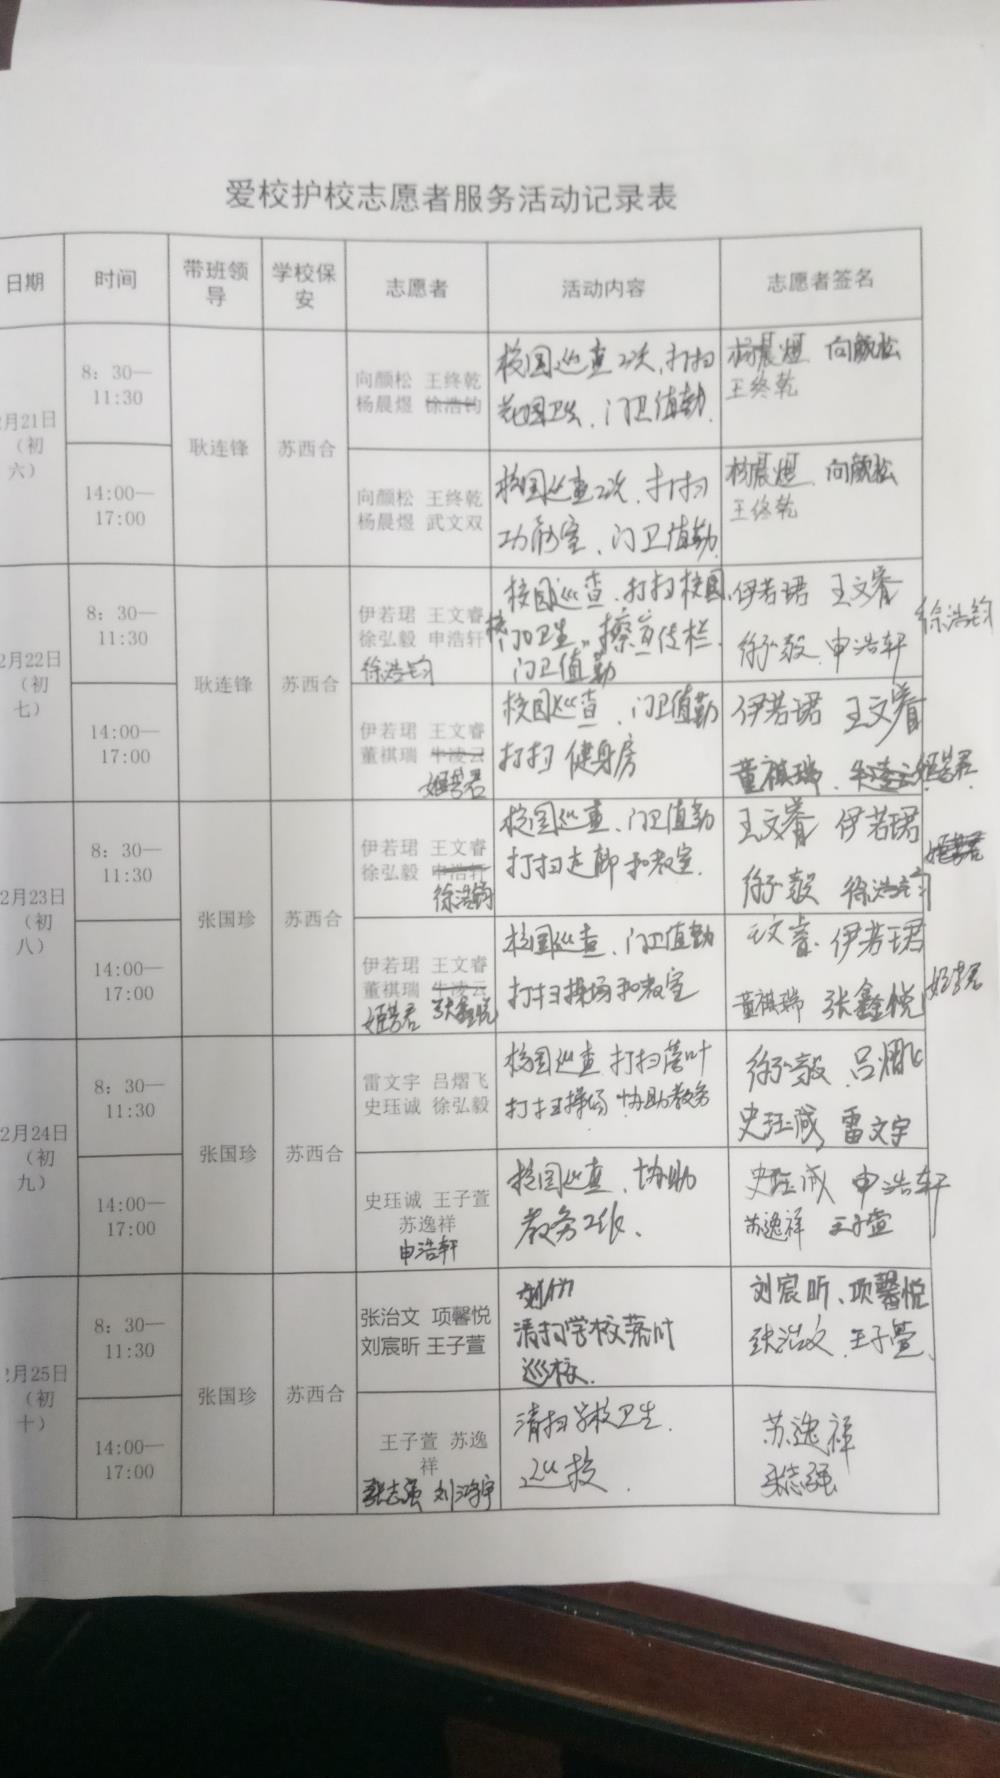 爱校护校志愿者服务活动记录表
日期 时间 带班领导 学校保安 志愿者 活动内容 志愿者签名
2月21日（初六）
8：30—11:30
耿连锋 苏西合
向颜松 王终乾
杨晨煜 徐浩钧
校园巡查2次,打扫
花园卫生、门卫值勤.
杨晨煜 向颜松
王终乾
14:00—17:00
向颜松 王终乾
杨晨煜 武文双
校园巡查2次、打扫
功能室、门卫值勤.
杨晨煜、向颜松
王终乾
2月22日（初七）
8：30—11:30
耿连锋 苏西合
伊若珺 王文睿
徐弘毅 申浩轩
徐浩钧
校园巡查、打扫校园、
校门口卫生、擦宣传栏、
门卫值勤
伊若珺 王文睿
徐弘毅 申浩轩
徐浩钧
14:00—17:00
伊若珺 王文睿
董祺瑞 牛凌云
校园巡查、门卫值勤
打扫健身房
伊若珺 王文睿
董祺瑞、牛凌云
2月23日（初八）
8：30—11:30
张国珍 苏西合
伊若珺 王文睿
徐弘毅 申浩轩
徐浩钧
校园巡查、门卫值勤
打扫走廊和教室.
王文睿 伊若珺
徐弘毅 徐浩钧
14:00—17:00
伊若珺 王文睿
董祺瑞 牛凌云
张鑫悦
校园巡查、门卫值勤
打扫操场和教室
王文睿. 伊若珺
董祺瑞 张鑫悦
2月24日（初九）
8：30—11:30
张国珍 苏西合
雷文宇 吕熠飞
史珏诚 徐弘毅
校园巡查 打扫落叶
打扫操场 协助教务
徐弘毅 吕熠飞
史珏诚 雷文宇
14:00—17:00
史珏诚 王子萱
苏逸祥
申浩轩
校园巡查、协助
教务工作、
史珏诚 申浩轩
苏逸祥 王子萱
2月25日（初十）
8：30—11:30
张国珍 苏西合
张治文 项馨悦
刘宸昕 王子萱
清扫学校落叶
巡校.
刘宸昕、项馨悦
张治文 王子萱.
14:00—17:00
王子萱 苏逸祥
张志强 刘鸿宇
清扫学校卫生.
巡校.
苏逸祥
张志强